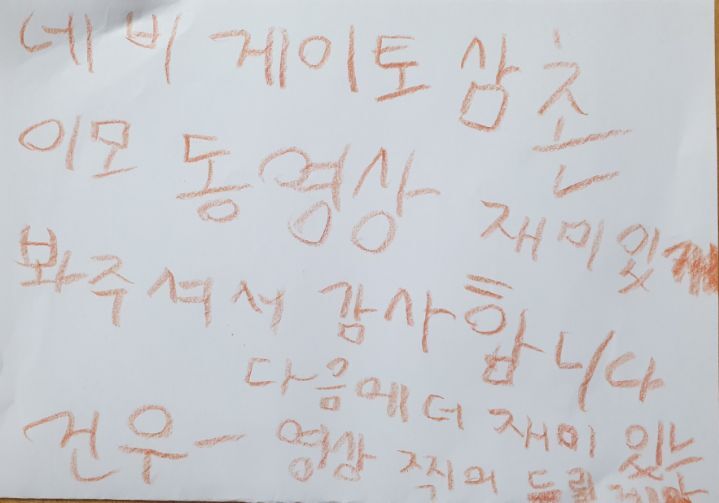 네비 게이토 삼촌
이모 동영상 재미있게
봐주셔서 감사합니다
다음에 더 재미있는
건우- 영상 찍어 드릴게요